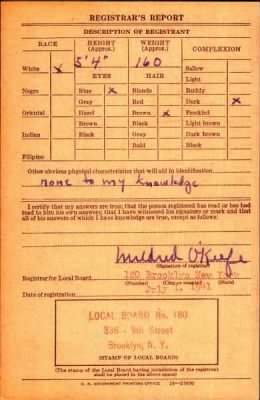 REGISTRAR'S REPORT
DESCRIPTION OF REGISTRANT
RACE HEIGHT (Approx.) WEIGHT (Approx.) COMPLEXION
5'4" 160
White x Sallow
EYES HAIR Light
Negro Blue x Blonde Ruddy
Gray Red Dark x
Oriental Hazel Brown x Freckled
Brown Black Light brown
Indian Black Gray Dark brown
Bald Black
Filipino
Other obvious physical characteristics that will aid in identification
none to my knowledge
I certify that my answers are true; that the person registered has read or has had
read to him his own answers; that I have witnessed his signature or mark and that
all of his answers of which I have knowledge are true, except as follows:
Mildred O'Keefe
(Signature of registrar)
Registrar for Local Board 180 Brooklyn New York
(Number) (City or county) (State)
Date of registration July 1, 1941
LOCAL BOARD No. 180
336 - 9th Street
Brooklyn, N. Y.
(STAMP OF LOCAL BOARD)
(The stamp of the Local Board having jurisdiction of the registrant
shall be placed in the above space)
U. S. GOVERNMENT PRINTING OFFICE 16-21630